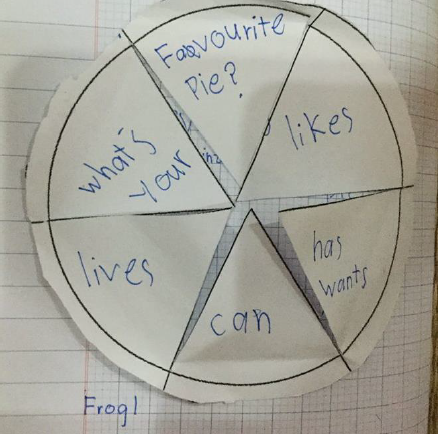 Favourite
Pie?
likes
what's
your
lives
has
wants
can
Frog1